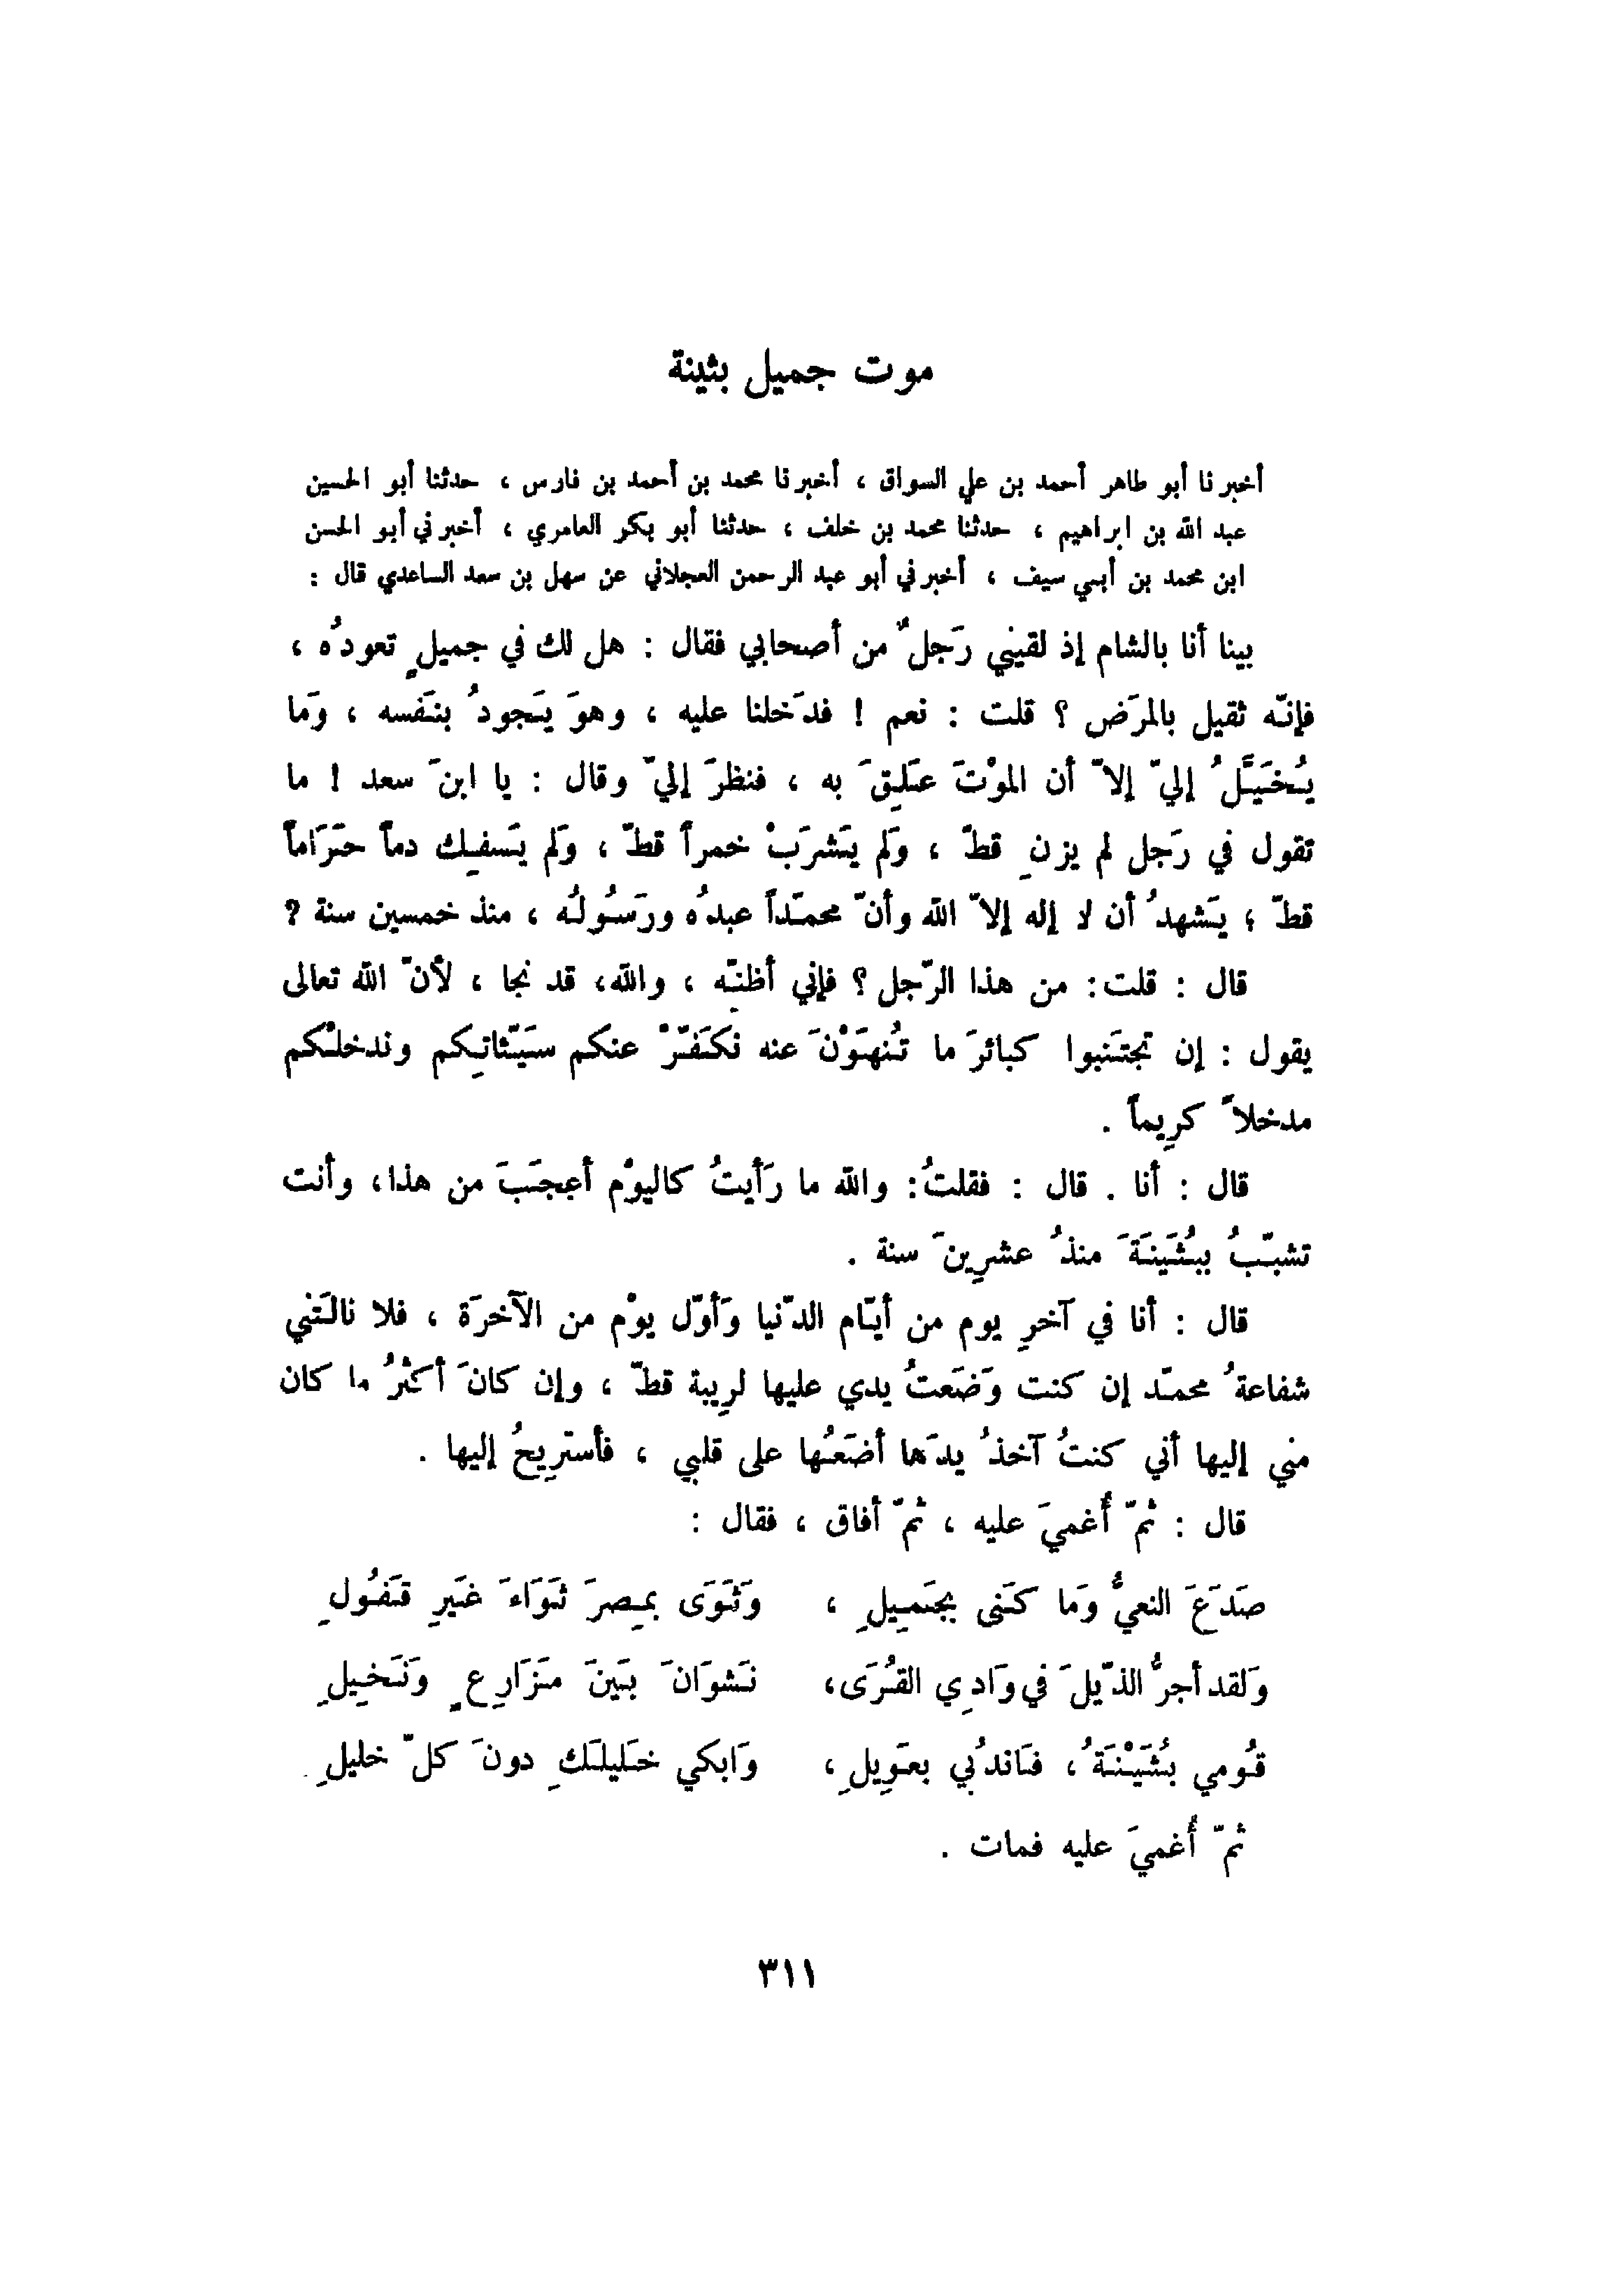 موت جميل بثينة
أخبرنا أبو طاهر أحمد بن علي السواق ، أخبرنا محمد بن أحمد بن فارس ، حدثنا أبو الحسين
عبد الله بن ابراهيم ، حدثنا محمد بن خلف ، حدثنا أبو بكر العامري ، أخبرني أبو الحسن
ابن محمد بن أبسي سيف ، أخبرني أبو عبد الرحمن العجلاني عن سهل بن سعد الساعدي قال :
بينا أنا بالشام إذ لقيني رَجلٌ من أصحابي فقال : هل لك في جميلٍ تعودُه ،
فإنّه ثقيل بالمرَض ؟ قلت : نعم ! فدَخلنا عليه ، وهوَ يَجودُ بنَفسه ، وَما
يُخَيَّلُ إليّ إلاّ أن الموْتَ عَلِقَ به ، فنظرَ إليّ وقال : يا ابنَ سعد ! ما
تقول في رَجل لم يزنِ قطّ ، وَلم يَشرَبْ خمراً قطّ ، وَلم يَسفِك دماً حَرَاماً
قطّ ؛ يَشهدُ أن لا إله إلاّ الله وأنّ محمّداً عبدُه ورَسُولُه ، منذ خمسين سنة ؟
قال : قلت : من هذا الرّجل ؟ فإني أظنّه ، والله، قد نجا ، لأنّ الله تعالى
يقول : إن تجتَنبوا كبائرَ ما تُنهَوْنَ عنه نكَفّرْ عنكم سَيّئاتِكم وندخلْكم
مدخلاً كرِيماً .
قال : أنا . قال : فقلتُ : والله ما رَأيتُ كاليوْم أعجَبَ من هذا، وأنت
تشبّبُ ببُثَينَةَ منذُ عشرِينَ سنة .
قال : أنا في آخرِ يوم من أيّام الدّنيا وَأوّل يوْم من الآخرَة ، فلا نالَتني
شفاعةُ محمّد إن كنت وَضَعتُ يدي عليها لرِيبة قطّ ، وإن كانَ أكثرُ ما كان
مني إليها أني كنتُ آخذُ يدَها أضَعُها على قلبي ، فأسترِيحُ إليها .
قال : ثمّ أُغميَ عليه ، ثمّ أفاق ، فقال :
صَدَعَ النعيُّ وَما كَنى بجَمِيلِ ، وَثَوَى بمِصرَ ثَوَاءَ غَيرِ قَفُولِ
وَلقد أجرُّ الذّيلَ في وَادِي القُرَى، نَشوَانَ بَينَ مَزَارِعٍ وَنَخِيلِ
قُومي بُثَيْنَةُ ، فَاندُبي بعَوِيلِ ، وَابكي خَليلَكِ دونَ كلّ خليلِ
ثمّ أُغميَ عليه فمات .
٣١١